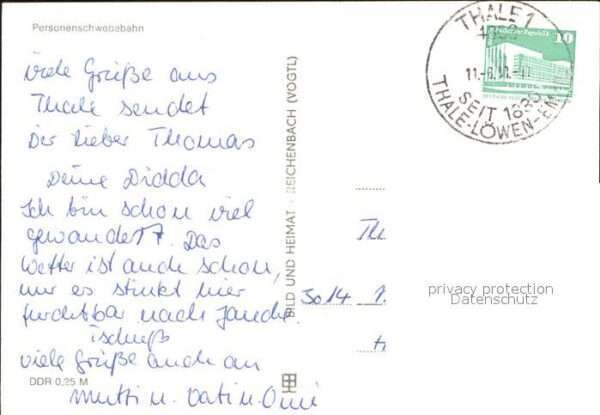 Personenschwebebahn
viele Grüße aus
Thale sendet
Dir lieber Thomas
Deine Didda
Ich bin schon viel
gewandert. Das
Wetter ist auch schön,
nur es stinkt hier
furchtbar nach
viele Grüße auch an
Mutti u. Vati u. Omi
DDR 0,25 M
BILD UND HEIMAT REICHENBACH (VOGTL)
THALE 1
10
SEIT 1835
THALE-LÖWEN-EM
3014
privacy protection
Datenschutz